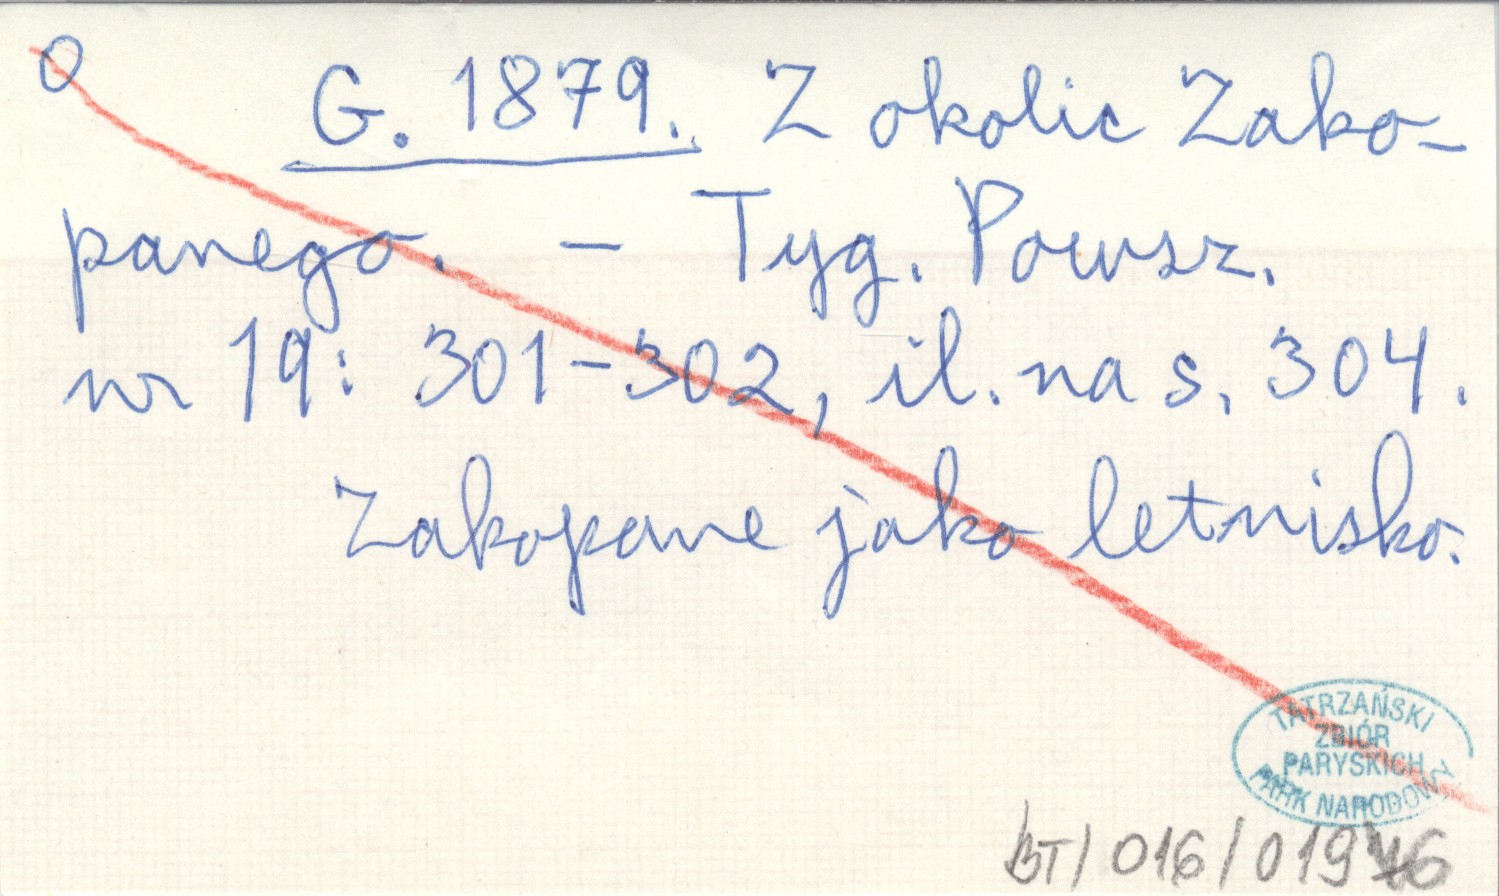 O
G. 1879. Z okolic Zako-
panego. – Tyg. Powsz.
nr 19: 301–302, il. na s. 304.
Zakopane jako letnisko.
TATRZAŃSKI
ZBIÓR
PARYSKICH
PARK NARODOWY
BT/016/019